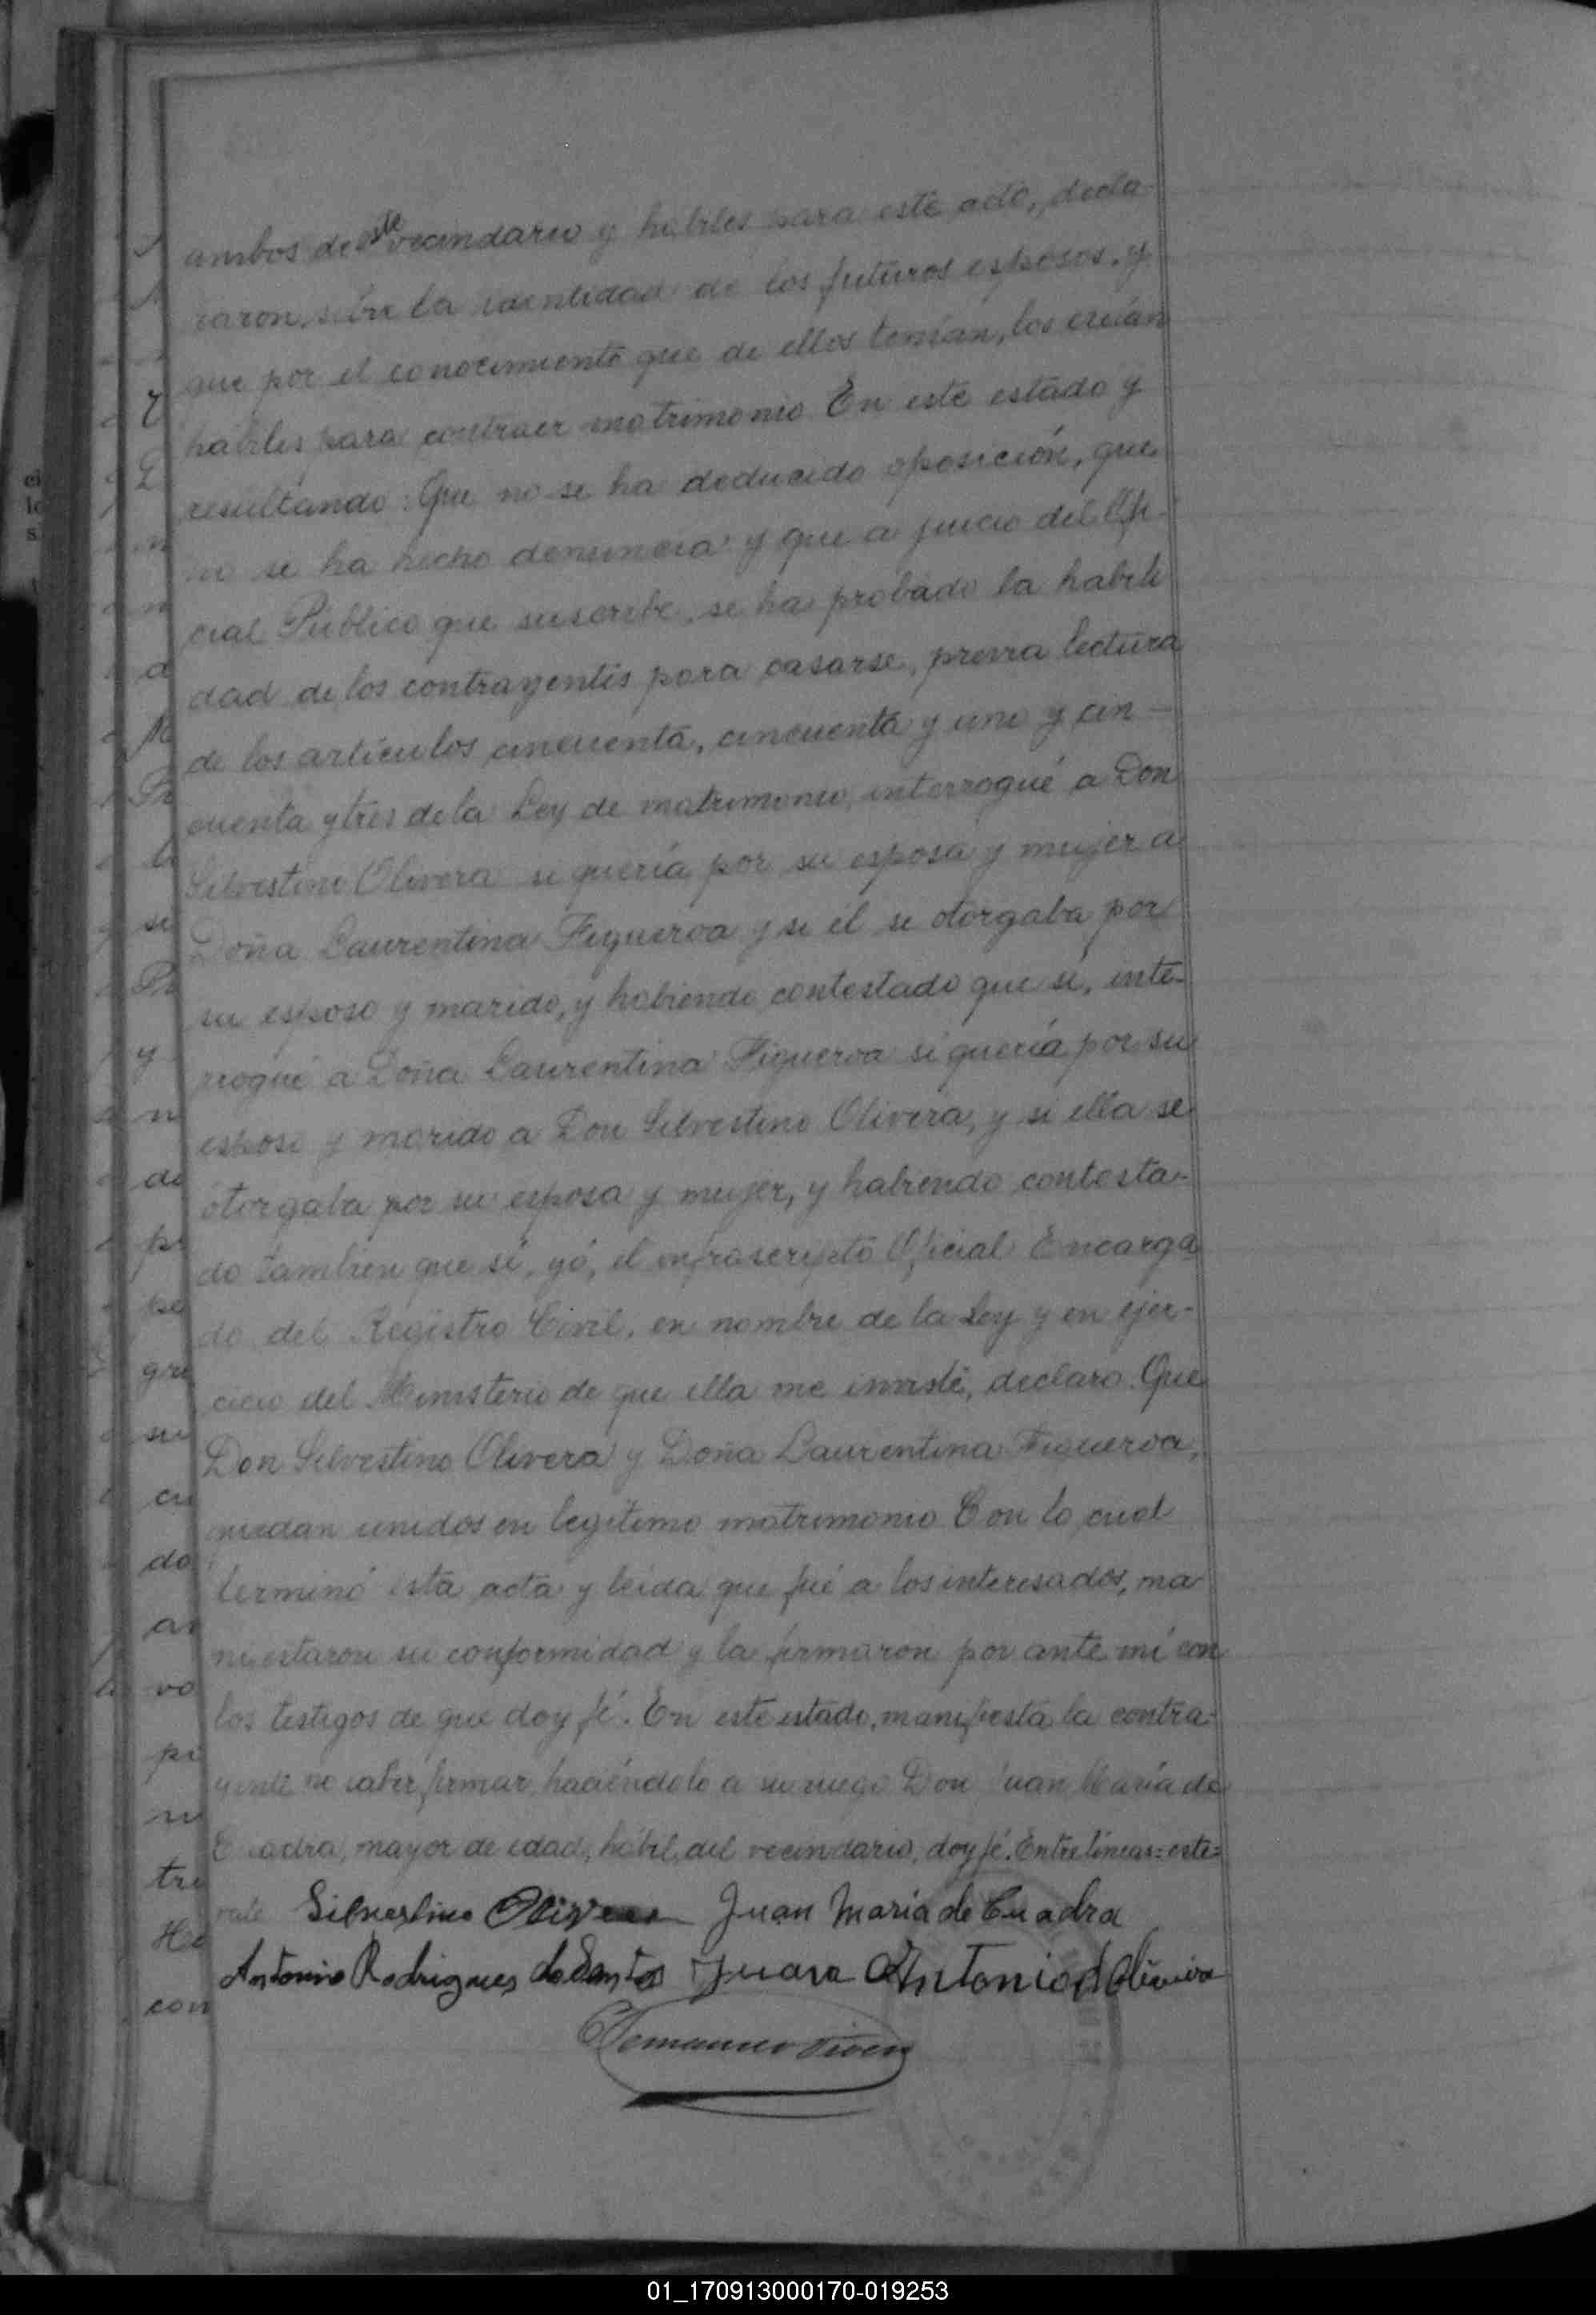 ambos de este vecindario y hábiles para este acto, decla-
raron, sobre la identidad de los futuros esposos, y
que por el conocimiento que de ellos tenían, los creían
hábiles para contraer matrimonio En este estado y
resultando: Que no se ha deducido oposición, que
no se ha hecho denuncia y que a juicio del Ofi-
cial Público que suscribe, se ha probado la habili
dad de los contrayentes para casarse, previa lectura
de los artículos cincuenta, cincuenta y uno y cin-
cuenta y tres de la Ley de matrimonio, interrogué a Don
Silvestino Olivera si quería por su esposa y mujer a
Doña Laurentina Figueroa y si él se otorgaba por
su esposo y marido, y habiendo contestado que sí, inte-
rrogué a Doña Laurentina Figueroa si quería por su
esposo y marido a Don Silvestino Olivera, y si ella se
otorgaba por su esposa y mujer, y habiendo contesta-
do tambien que sí, yó, el infrascripto Oficial Encarga
do del Registro Civil, en nombre de la Ley y en ejer-
cicio del Ministerio de que ella me inviste, declaro. Que
Don Silvestino Olivera y Doña Laurentina Figueroa,
quedan unidos en legítimo matrimonio Con lo cual
terminó esta acta y leída que fué a los interesados, ma
nifestaron su conformidad y la firmaron por ante mí con
los testigos de que doy fé. En este estado, manifiesta la contra-
yente no saber firmar, haciéndolo a su ruego Don Juan María de
Cuadra, mayor de edad, hábil, del vecindario, doy fé. Entre líneas=este=
vale Silvestino Olivera Juan Maria de Cuadra
Antonio Rodrigues do Santos Juan Antonio d Oliveira
01_170913000170-019253